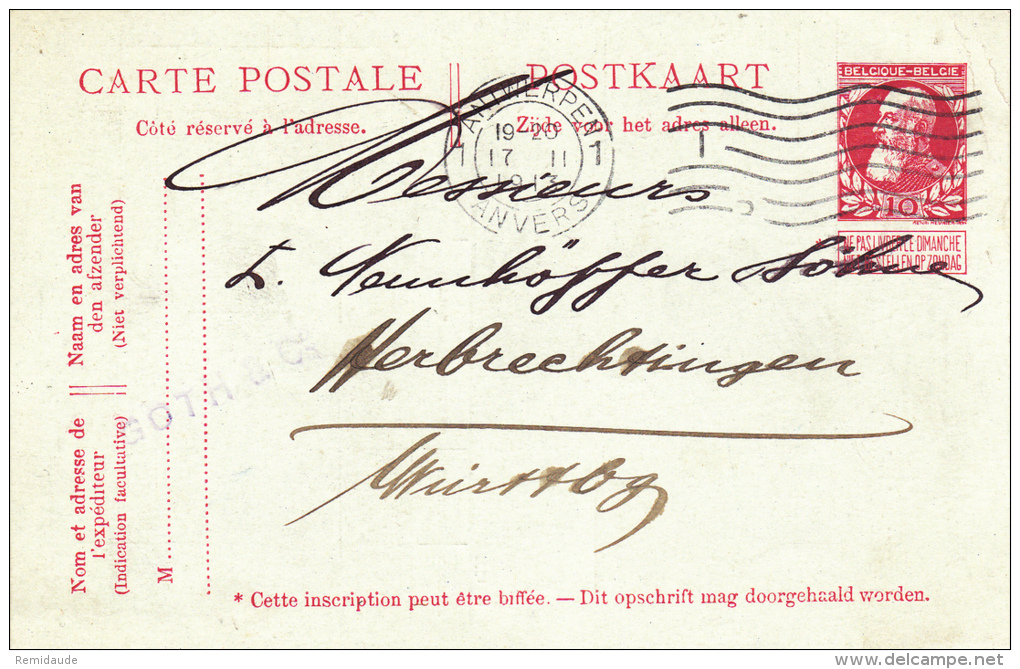 CARTE POSTALE || POSTKAART
Côté réservé à l'adresse.
Zijde voor het adres alleen.
ANTWERPEN
1 19-20 1
17 II
1913
ANVERS
1
BELGIQUE-BELGIË
10
* NE PAS LIVRER LE DIMANCHE
NIET BESTELLEN OP ZONDAG
Messieurs
Neunhöffer Söhne
Herbrechtingen
Württbg
GOTH & Co
Naam en adres van
den afzender
(Niet verplichtend)
Nom et adresse de
l'expéditeur
(Indication facultative)
M
* Cette inscription peut être biffée. — Dit opschrift mag doorgehaald worden.
Remidaude
www.delcampe.net